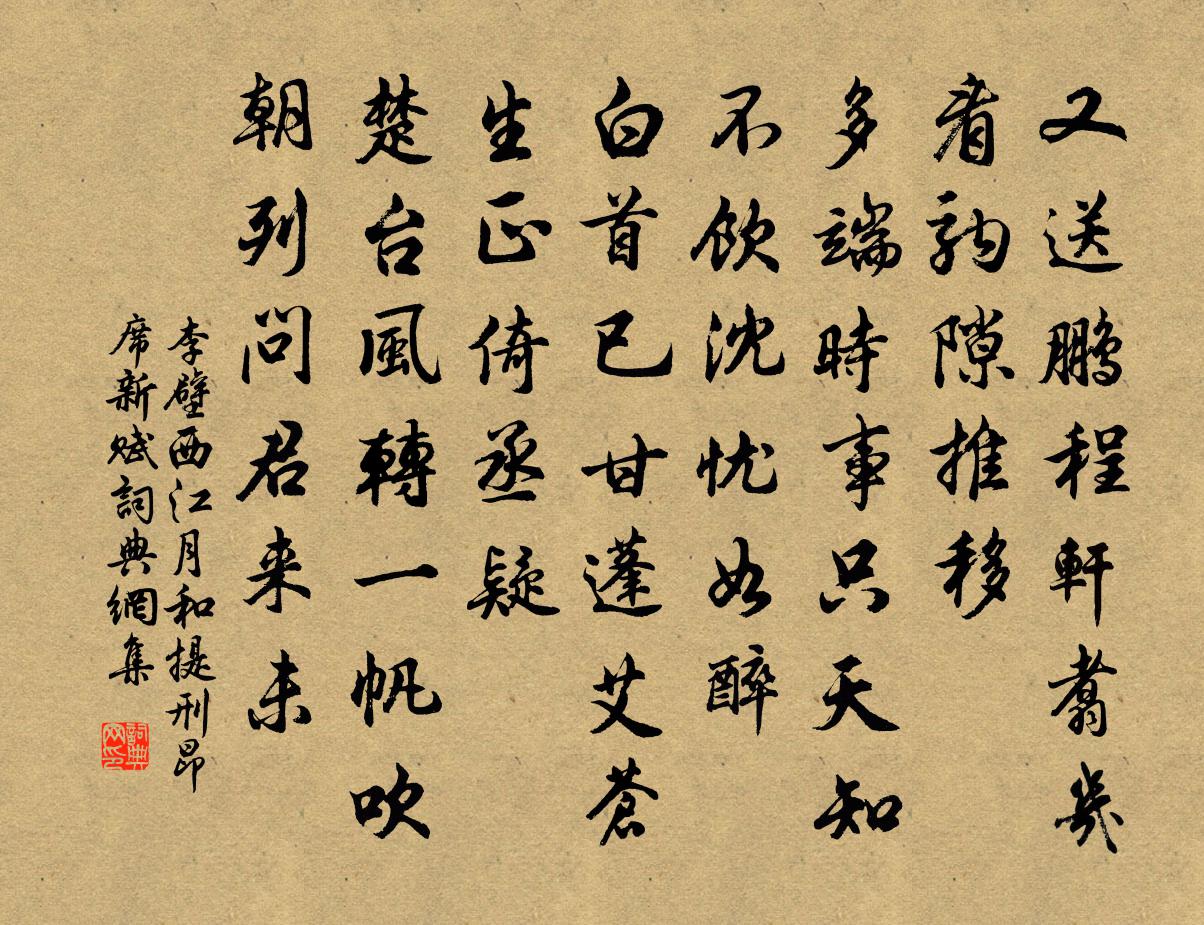 又送鵬程軒翥幾
看駒隙推移
多端時事只天知
不飲沈忧如醉
白首已甘蓬艾蒼
生正倚丞疑
楚台風轉一帆吹
朝列問君来未
李壁西江月和提刑昂
席新赋詞典網集
詞典网印